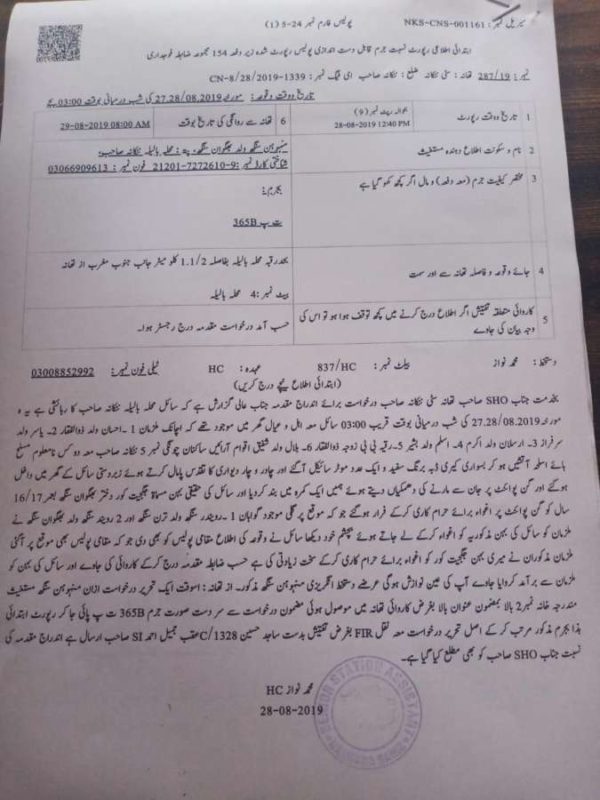 سیریل نمبر: NKS-CNS-001161 پولیس فارم نمبر 24-5 (1)
ابتدائی اطلاعی رپورٹ نسبت جرم قابل دست اندازی پولیس رپورٹ شدہ زیر دفعہ 154 مجموعہ ضابطہ فوجداری
نمبر: 287/19 تھانہ: سٹی ننکانہ ضلع: ننکانہ صاحب ای ٹیگ نمبر: CN-8/28/2019-1339
تاریخ ووقت وقوعہ: مورخہ 27.28/08.2019 کی شب درمیانی بوقت 03:00 بجے
1 تاریخ ووقت رپورٹ بحوالہ رپٹ نمبر (9) 28-08-2019 12:40 PM 6 تھانہ سے روانگی کی تاریخ بوقت 29-08-2019 08:00 AM
2 نام و سکونت اطلاع دہندہ مستغیث منموہن سنگھ ولد بھگوان سنگھ، پتہ: محلہ بالیلہ ننکانہ صاحب،
شناختی کارڈ نمبر: 21201-7272610-9 فون نمبر: 03066909613
3 مختصر کیفیت جرم (معہ دفعہ) و مال اگر کچھ کھو گیا ہے بجرم:
ت پ 365B
4 جائے وقوعہ و فاصلہ تھانہ سے اور سمت بحدرقبہ محلہ بالیلہ بفاصلہ 1.1/2 کلو میٹر جانب جنوب مغرب از تھانہ
بیٹ نمبر: 4 محلہ بالیلہ
5 کاروائی متعلقہ تفتیش اگر اطلاع درج کرنے میں کچھ توقف ہوا ہو تو اس کی وجہ بیان کی جاوے حسب آمد درخواست مقدمہ درج رجسٹر ہوا۔
دستخط: محمد نواز بیلٹ نمبر: 837/HC عہدہ: HC ٹیلی فون نمبر: 03008852992
(ابتدائی اطلاع نیچے درج کریں)
بخدمت جناب SHO صاحب تھانہ سٹی ننکانہ صاحب درخواست برائے اندراج مقدمہ جناب عالی گزارش ہے کہ سائل محلہ بالیلہ ننکانہ صاحب کا رہائشی ہے یہ کہ
مورخہ 27.28/08.2019 کی شب درمیانی بوقت قریب 03:00 سائل معہ اہل و عیال گھر میں موجود تھے کہ اچانک ملزمان 1۔ احسان ولد ذوالفقار 2۔ یاسر ولد
سرفراز 3۔ ارسلان ولد اکرم 4۔ اسلم ولد بشیر 5۔ رقیہ بی بی زوجہ ذوالفقار 6۔ بلال ولد شفیق اقوام آرائیں ساکنان چونگی نمبر 5 ننکانہ صاحب معہ دو کس نامعلوم مسلح
ہائے اسلحہ آتشیں ہو کر بسواری کیری ڈبہ برنگ سفید و ایک عدد موٹر سائیکل آگئے اور چادر و چار دیواری کا تقدس پامال کرتے ہوئے زبردستی سائل کے گھر میں داخل
ہوگئے اور گن پوائنٹ پر جان سے مارنے کی دھمکیاں دیتے ہوئے ہمیں ایک کمرہ میں بند کردیا اور سائل کی حقیقی بہن مسماۃ جگجیت کور دختر بھگوان سنگھ بعمر 16/17
سال کو گن پوائنٹ پر اغواء برائے حرام کاری کر کے فرار ہوگئے جو کہ موقع پر گلی موجود گواہان 1۔ رویندر سنگھ ولد ترن سنگھ اور 2 رویند سنگھ ولد بھگوان سنگھ نے
ملزمان کو سائل کی بہن مذکوریہ کو اغواء کرکے لے جاتے ہوئے بچشم خود دیکھا سائل نے وقوعہ کی اطلاع مقامی پولیس کو بھی دی جو کہ مقامی پولیس بھی موقع پر آگئی
ملزمان مذکوران نے میری بہن جگجیت کور کو اغواء برائے حرام کاری کرکے سخت زیادتی کی ہے حسب ضابطہ مقدمہ درج کرکے کاروائی کی جاوے اور سائل کی بہن کو
ملزمان سے برآمد کروایا جاوے آپ کی عین نوازش ہوگی عرضے دستخط انگریزی منموہن سنگھ مذکور۔ از تھانہ: اسوقت ایک تحریر درخواست ازان منموہن سنگھ مستغیث
مندرجہ خانہ نمبر 2 بالا بمضمون عنوان بالا بغرض کاروائی تھانہ میں موصول ہوئی مضمون درخواست سے سر دست صورت جرم 365B ت پ پائی جا کر رپورٹ ابتدائی
ہذا بجرم مذکور مرتب کرکے اصل تحریر درخواست معہ نقل FIR بغرض تفتیش بدست ساجد حسین 1328/C عقب جمیل احمد SI صاحب ارسال ہے اندراج مقدمہ کی
نسبت جناب SHO صاحب کو بھی مطلع کیا گیا ہے۔
محمد نواز HC
28-08-2019
SENIOR STATION ASSISTANT